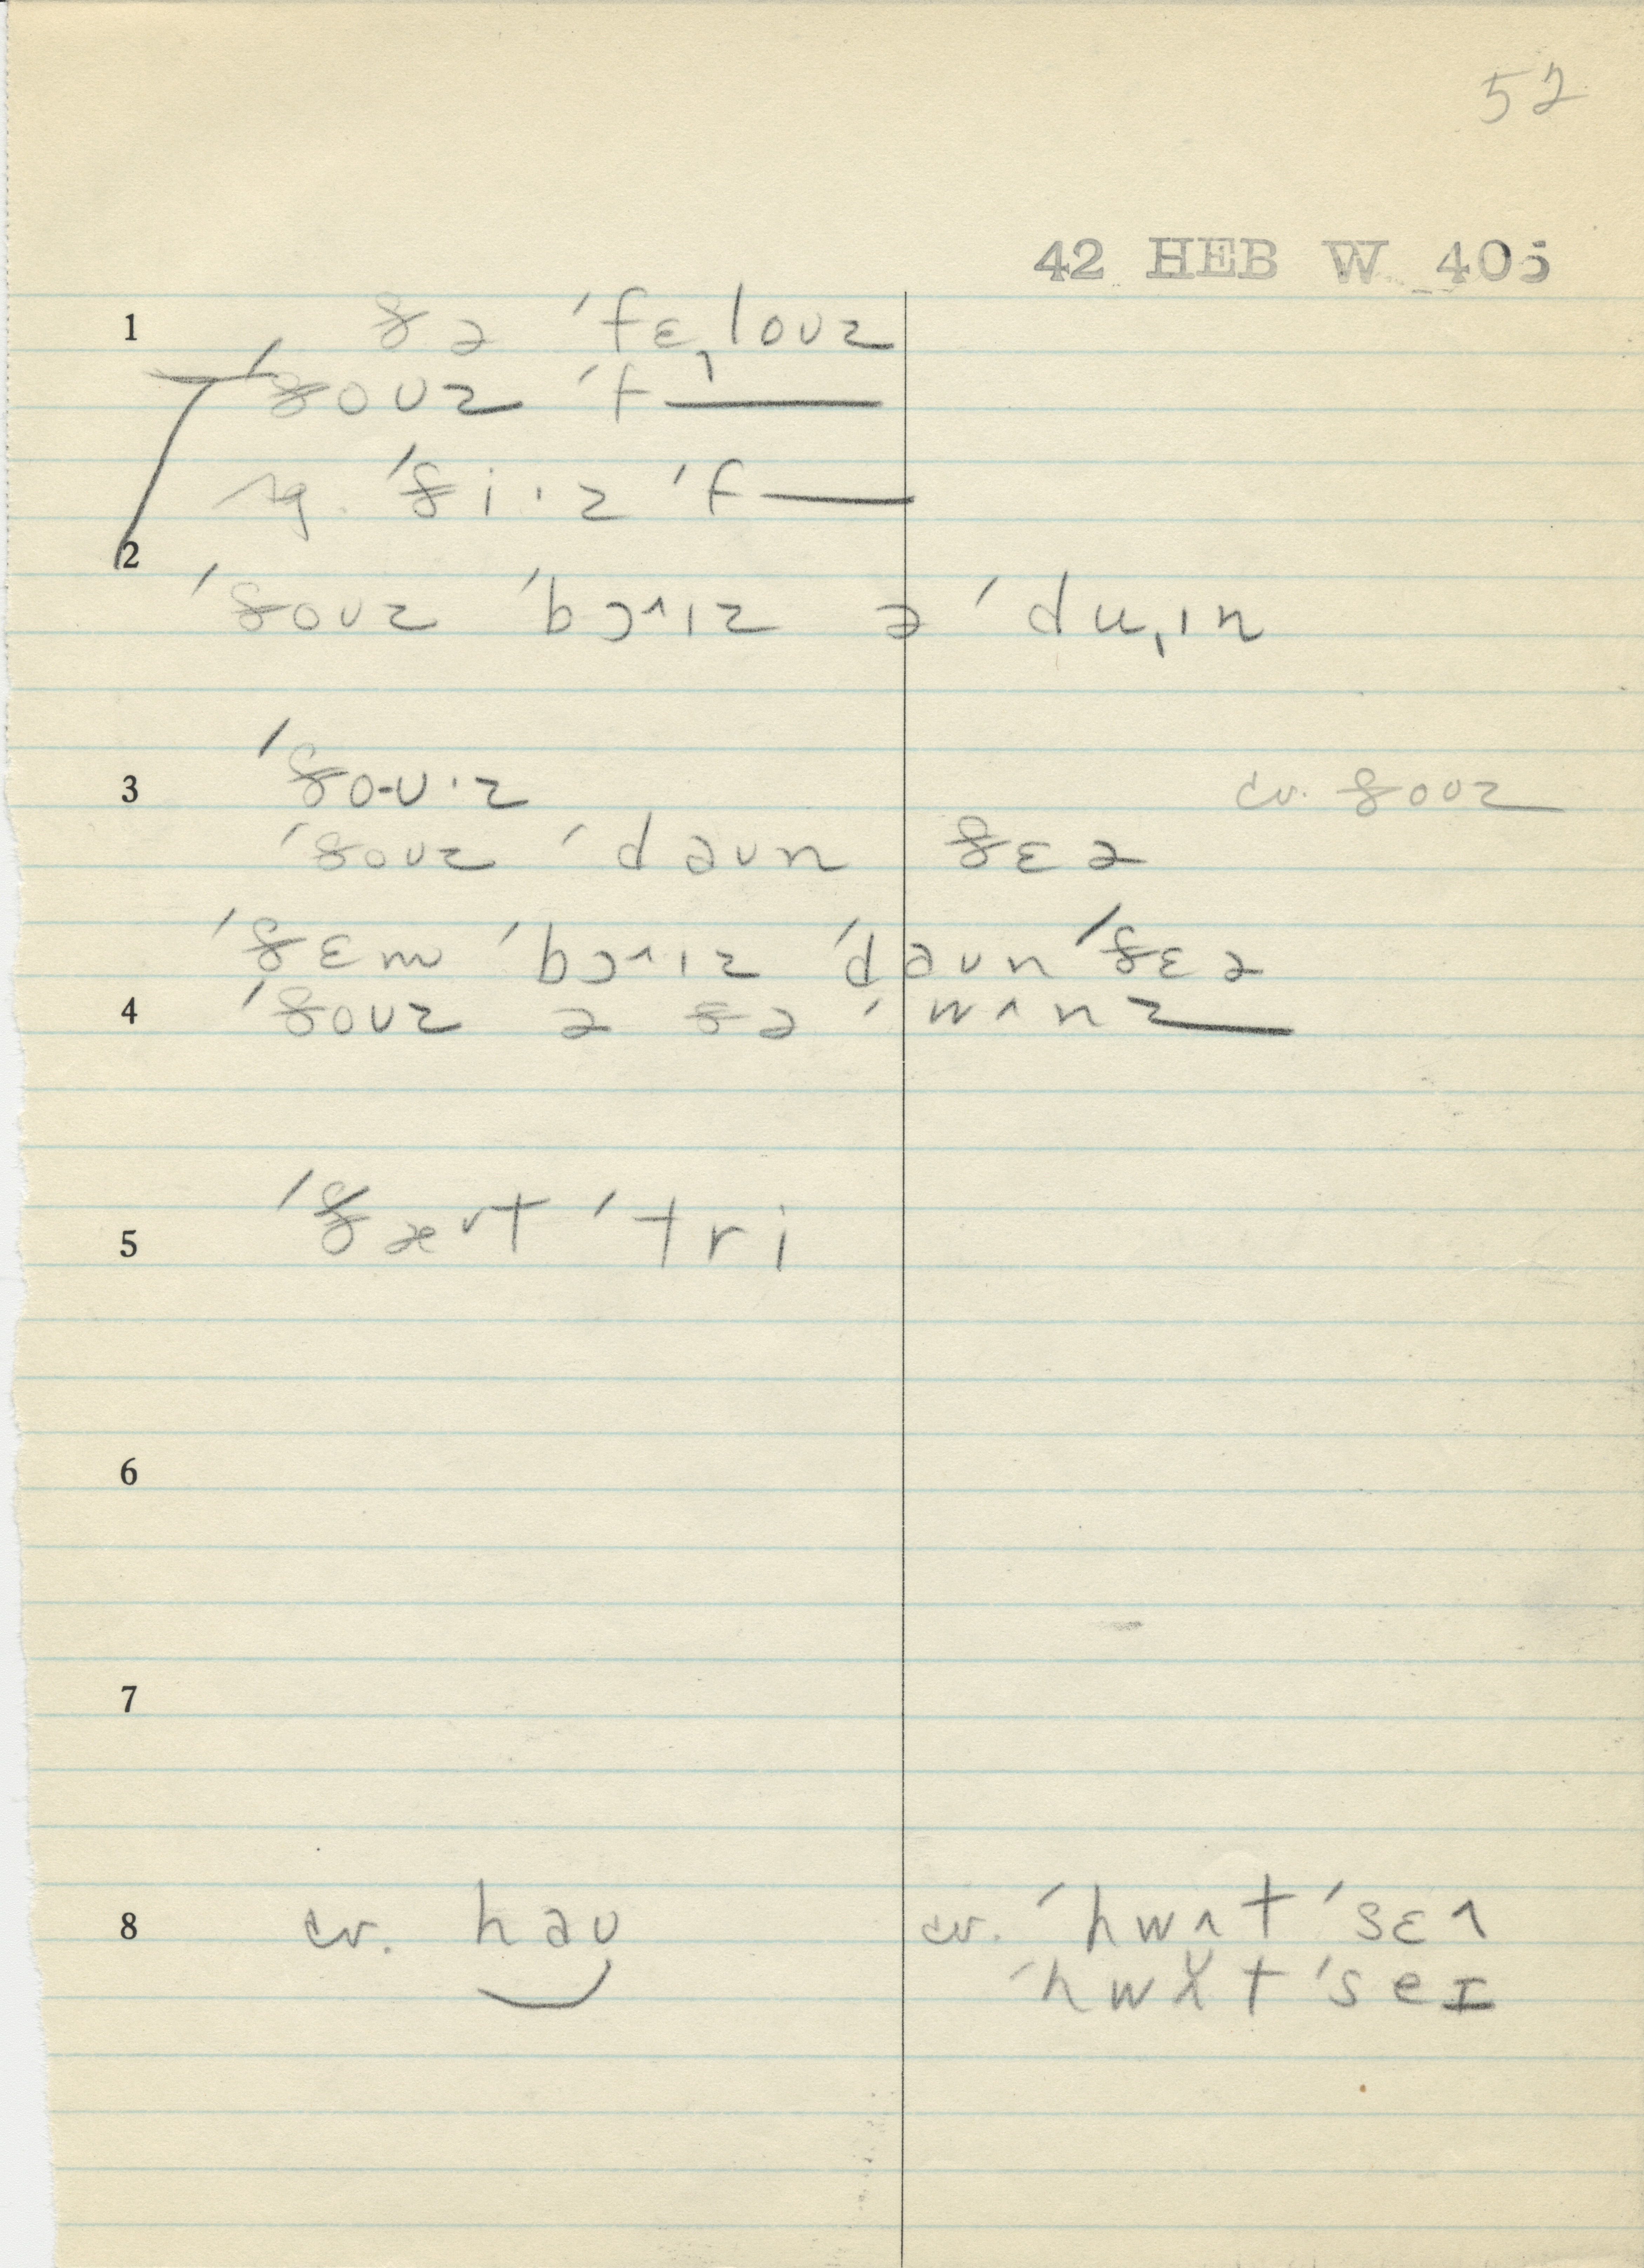 52
42 HEB W 405
1 ðə ˈfɛˌloʊz
ˈðoʊz ˈf——
sg. ˈði·z ˈf——
2
ˈðoʊz ˈbɔ^ɪz ə ˈduˌɪn
3 ˈðo-ʊ·z cv. ðoʊz
ˈðoʊz ˈdaʊn ðɛə
ˈðɛm ˈbɔ^ɪz ˈdaʊn ˈðɛə
4 ˈðoʊz ə ðə ˈwʌnz
5 ˈðæ˅t ˈtri
6
7
8 cv. haʊ cv. ˈhwʌt ˈsɛ^
ˈhwt ˈseɪ